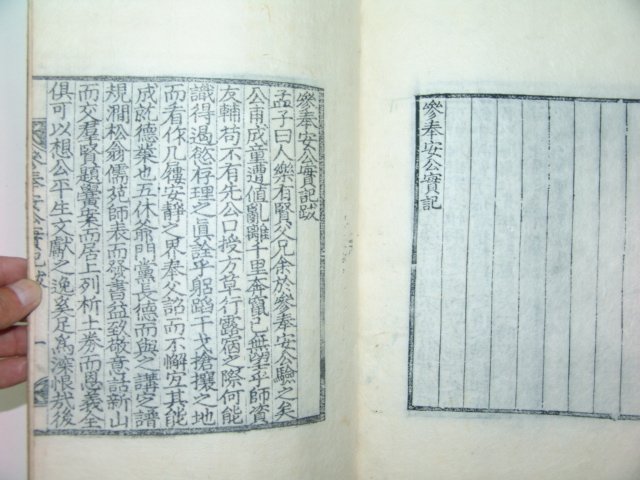 參奉安公實記
參奉安公實記跋
孟子曰人樂有賢父兄余於參奉安公驗之矣
公甫成童遭値亂離千里奔竄已無望乎師資
友輔苟不有先公口授方草行露宿之際何能
識得遏慾存理之直詮乎躬蹈干戈搶攘之地
而看作几安靜之界奉父詔而不懈宜其能
成就德業也五休爺門黨長德而與之講究譜
規澗松翁儒苑師表而發書益致敬意話新山
而交羣賢題黌案而居上列析士恭而恩義全
俱可以想公平生文獻之逸奚足爲深恨哉後
參奉安公實記跋 一